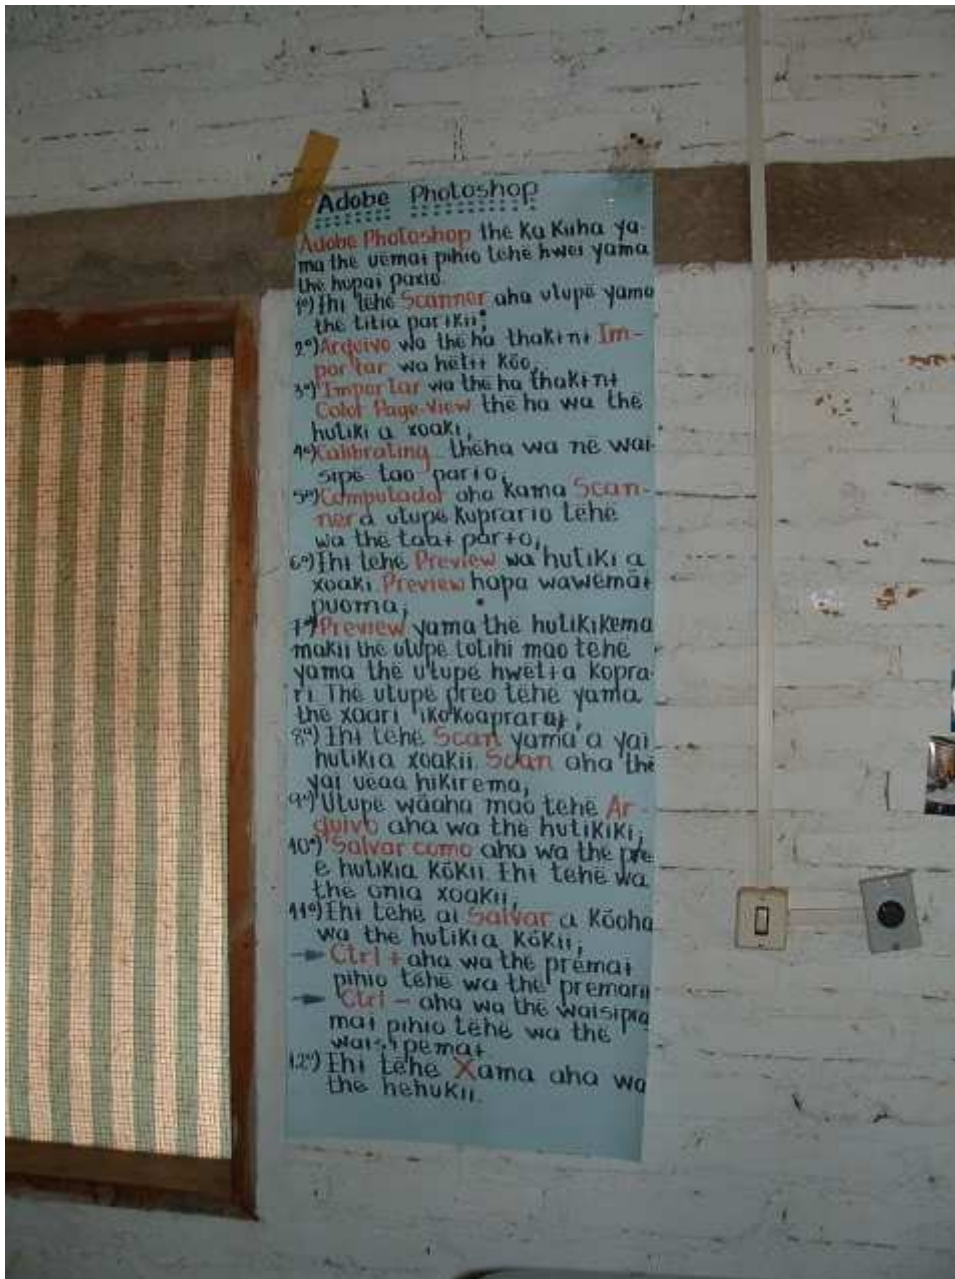 Adobe Photoshop
Adobe Photoshop the ka kuha ya-
ma the uëmai pihio tëhë hwei yama
the hupai paxio.
1º) Ɨhɨ tëhë Scanner aha utupë yama
the titia parikii;
2º) Arquivo wa the ha thakɨnɨ Im-
portar wa hëtɨɨ kõo,
3º) Importar wa the ha thakɨnɨ
Color Page-view thë ha wa the
hutiki a xoaki,
4º) Calibrating thëha wa në wai-
sipë tao pario,
5º) Computador aha kama Scan-
ner a utupë kuprario tëhë
wa the taaɨ parɨo,
6º) Ɨhɨ tëhë Preview wa hutiki a
xoaki. Preview hapa wawëmaɨ
puoma,
7º) Preview yama thë hutikikema
makii the utupë totihi mao tëhë
yama the utupë hwëtɨa kopra-
ri. Thë utupë preo tëhë yama
the xaari ikokoapraraɨ,
8º) Ɨhɨ tëhë Scan yama a yai
hutikia xoakii. Scan aha thë
yai uëaa hikirema,
9º) Utupë wãaha mao tëhë Ar-
quivo aha wa the hutikiki,
10º) Salvar como aha wa the pre
e hutikia kõkii Ɨhɨ tëhë wa
the onia xoakii,
11º) Ɨhɨ tëhë ai Salvar a kõoha
wa the hutikia kõkii,
Ctrl + aha wa the prëmaɨ
pihio tëhë wa the premarii
Ctrl - aha wa thë waisipra
maɨ pihio tëhë wa the
waisipemaɨ
12º) Ɨhɨ tëhë Xama aha wa
the hehukii.